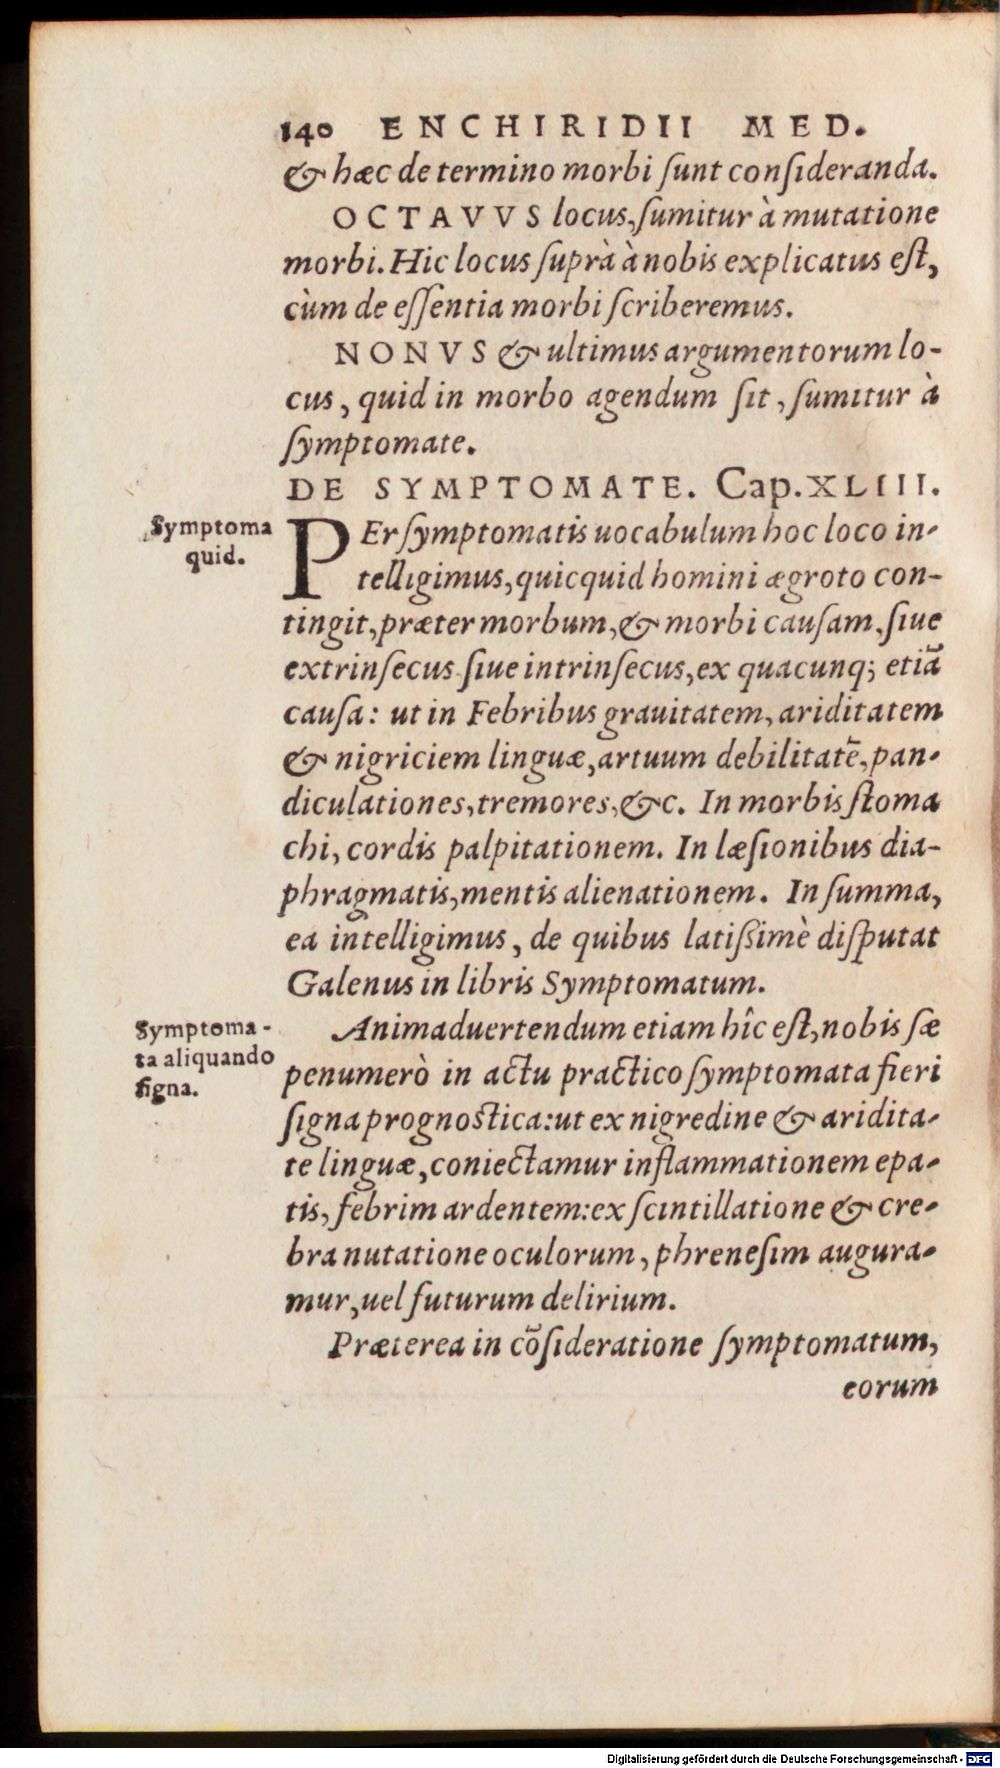 140 ENCHIRIDII MED.
& hæc de termino morbi ſunt conſideranda.
OCTAVVS locus, ſumitur à mutatione
morbi. Hic locus ſuprà à nobis explicatus eſt,
cùm de eſſentia morbi ſcriberemus.
NONVS & ultimus argumentorum lo-
cus, quid in morbo agendum ſit, ſumitur à
ſymptomate.
DE SYMPTOMATE. Cap. XLIII.
Symptoma
quid.
PEr ſymptomatis uocabulum hoc loco in-
telligimus, quicquid homini ægroto con-
tingit, præter morbum, & morbi cauſam, ſiue
extrinſecus ſiue intrinſecus, ex quacunq; etiā
cauſa: ut in Febribus grauitatem, ariditatem
& nigriciem linguæ, artuum debilitatē, pan-
diculationes, tremores, &c. In morbis ſtoma
chi, cordis palpitationem. In læſionibus dia-
phragmatis, mentis alienationem. In ſumma,
ea intelligimus, de quibus latißimè diſputat
Galenus in libris Symptomatum.
Symptoma-
ta aliquando
ſigna.
Animaduertendum etiam hîc eſt, nobis ſæ
penumerò in actu practico ſymptomata fieri
ſigna prognoſtica: ut ex nigredine & aridita-
te linguæ, coniectamur inflammationem epa-
tis, febrim ardentem: ex ſcintillatione & cre-
bra nutatione oculorum, phreneſim augura-
mur, uel futurum delirium.
Præterea in cōſideratione ſymptomatum,
eorum
Digitalisierung gefördert durch die Deutsche Forschungsgemeinschaft - DFG